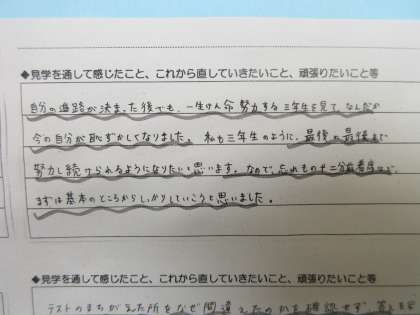 ◆見学を通して感じたこと、これから直していきたいこと、頑張りたいこと等
自分の進路が決まった後でも、一生けん命努力する三年生を見て、なんだか
今の自分が恥ずかしくなりました。私も三年生のように、最後の最後まで
努力し続けられるようになりたい思います。なので、忘れもの十二分前着席など、
まずは基本のところからしっかりしていこうと思いました。
◆見学を通して感じたこと、これから直していきたいこと、頑張りたいこと等
テストのまちがえた所をなぜ間違えたのかを確認せず、答えを